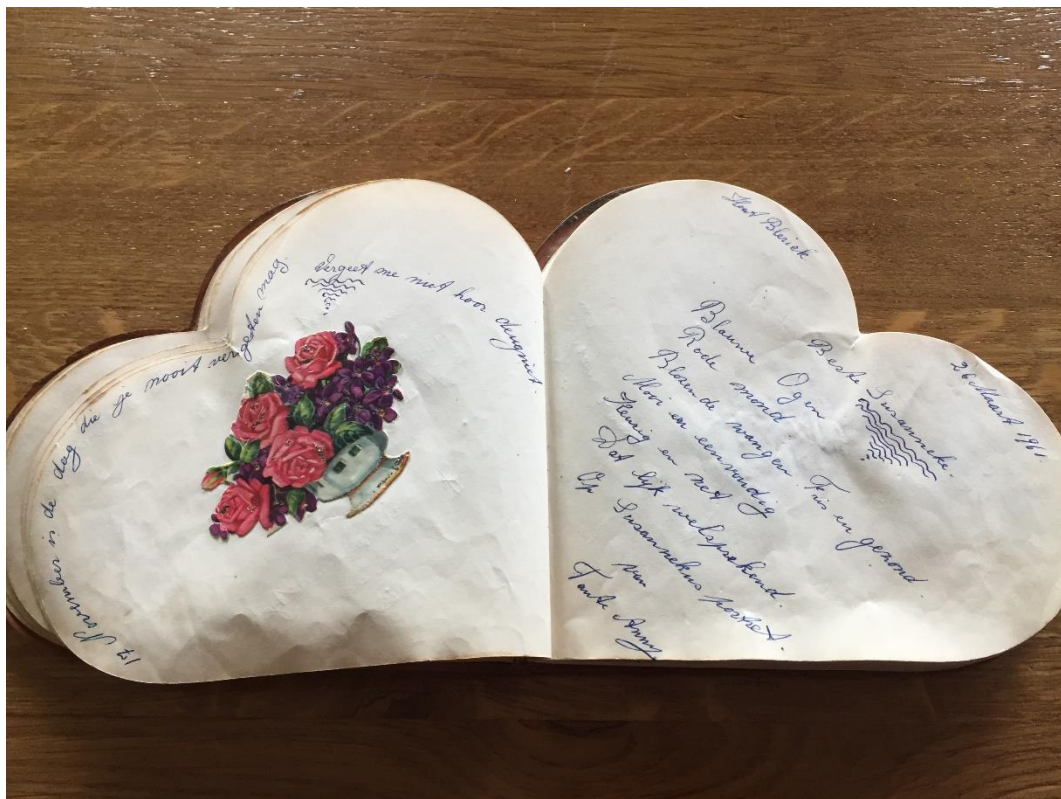 17 November is de dag die je nooit vergeten mag.
Vergeet me niet hoor deugniet
Hout Blerick
26 Maart 1961.
Beste Susanneke.
Blauwe Ogen
Rode mond Fris en gezond.
Blozende wangen
Mooi en eenvoudig
Keurig en net
Dat lijk welsprekend.
Op Susannekes portret.
van
Tante Anny